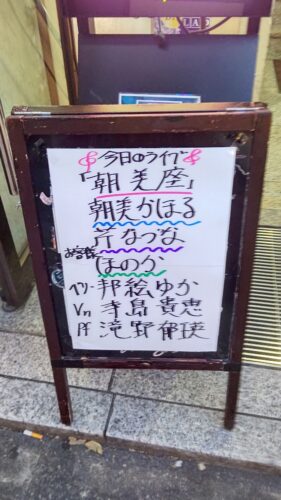 今日のライブ
「朝美座」
朝美かほる
芹なづな
お客様
ほのか
ベリー 邦絵ゆか
Vn 寺島貴恵
Pf 滝野郁瑛